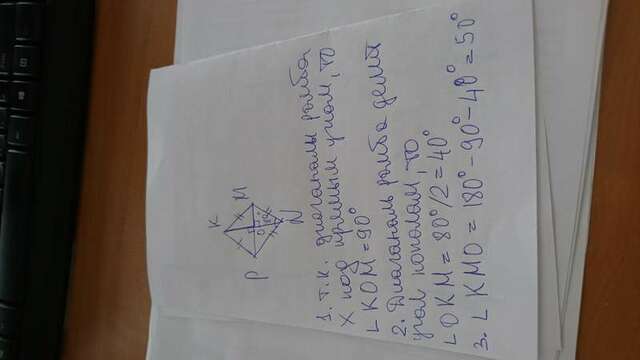 K
P
M
O
N
1. т.к. диагонали ромба
X под прямым углом, то
∟KOM = 90°
2. Диагональ ромба делит
угол пополам, то
∟OKM = 80°/2 = 40°
3. ∟KMO = 180° - 90° - 40° = 50°